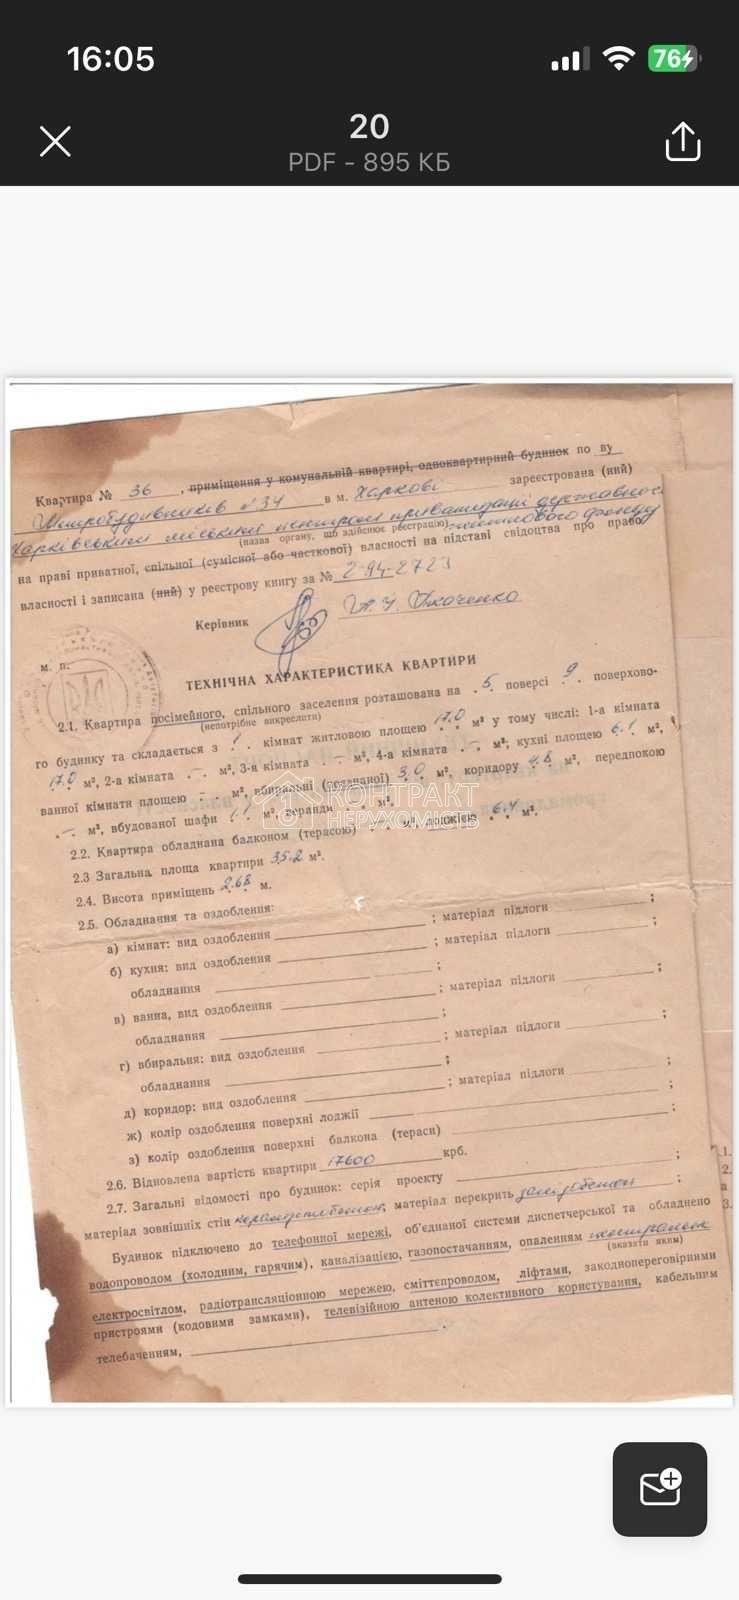 16:05
76
20
PDF - 895 КБ
Квартира № 36, приміщення у комунальній квартирі, одноквартирний будинок по ву
Метробудівників №34 в м. Харкові зареєстрована (ний)
Харківським міським центром приватизації державного
(назва органу, що здійснює реєстрацію) житлового фонду
на праві приватної, спільної (сумісної або часткової) власності на підставі свідоцтва про право
власності і записана (ний) у реєстрову книгу за № 2-94-2723
Керівник
м. п.
ТЕХНІЧНА ХАРАКТЕРИСТИКА КВАРТИРИ
2.1. Квартира посімейного, спільного заселення розташована на 5 поверсі 9 поверхово-
(непотрібне викреслити)
го будинку та складається з 1 кімнат житловою площею 17.0 м² у тому числі: 1-а кімната
17.0 м², 2-а кімната — м², 3-я кімната — м², 4-а кімната — м²; кухні площею 6.1 м²,
ванної кімнати площею — м², вбиральні (поєднаної) 3,0 м², коридору 4.8 м², передпокою
— м², вбудованої шафи м², веранди м².
КОНТРАКТ
НЕРУХОМІСТЬ
2.2. Квартира обладнана балконом (терасою) м², лоджією 6.4 м².
2.3 Загальна площа квартири 35.2 м².
2.4. Висота приміщень 2.68 м.
2.5. Обладнання та оздоблення:
а) кімнат: вид оздоблення ; матеріал підлоги ;
б) кухня: вид оздоблення ; матеріал підлоги ;
обладнання ;
в) ванна, вид оздоблення ; матеріал підлоги ;
обладнання ;
г) вбиральня: вид оздоблення ; матеріал підлоги ;
обладнання ;
д) коридор: вид оздоблення ; матеріал підлоги ;
ж) колір оздоблення поверхні лоджії ;
з) колір оздоблення поверхні балкона (тераси) ;
2.6. Відновлена вартість квартири 17600 крб.
2.7. Загальні відомості про будинок: серія проекту ;
матеріал зовнішніх стін керамзитобетон, матеріал перекрить залізобетон ;
Будинок підключено до телефонної мережі, об'єднаної системи диспетчерської та обладнено
водопроводом (холодним, гарячим), каналізацією, газопостачанням, опаленням
(вказати яким)
електросвітлом, радіотрансляційною мережею, сміттєпроводом, ліфтами, законопереговірними
пристроями (кодовими замками), телевізійною антеною колективного користування, кабельним
телебаченням,